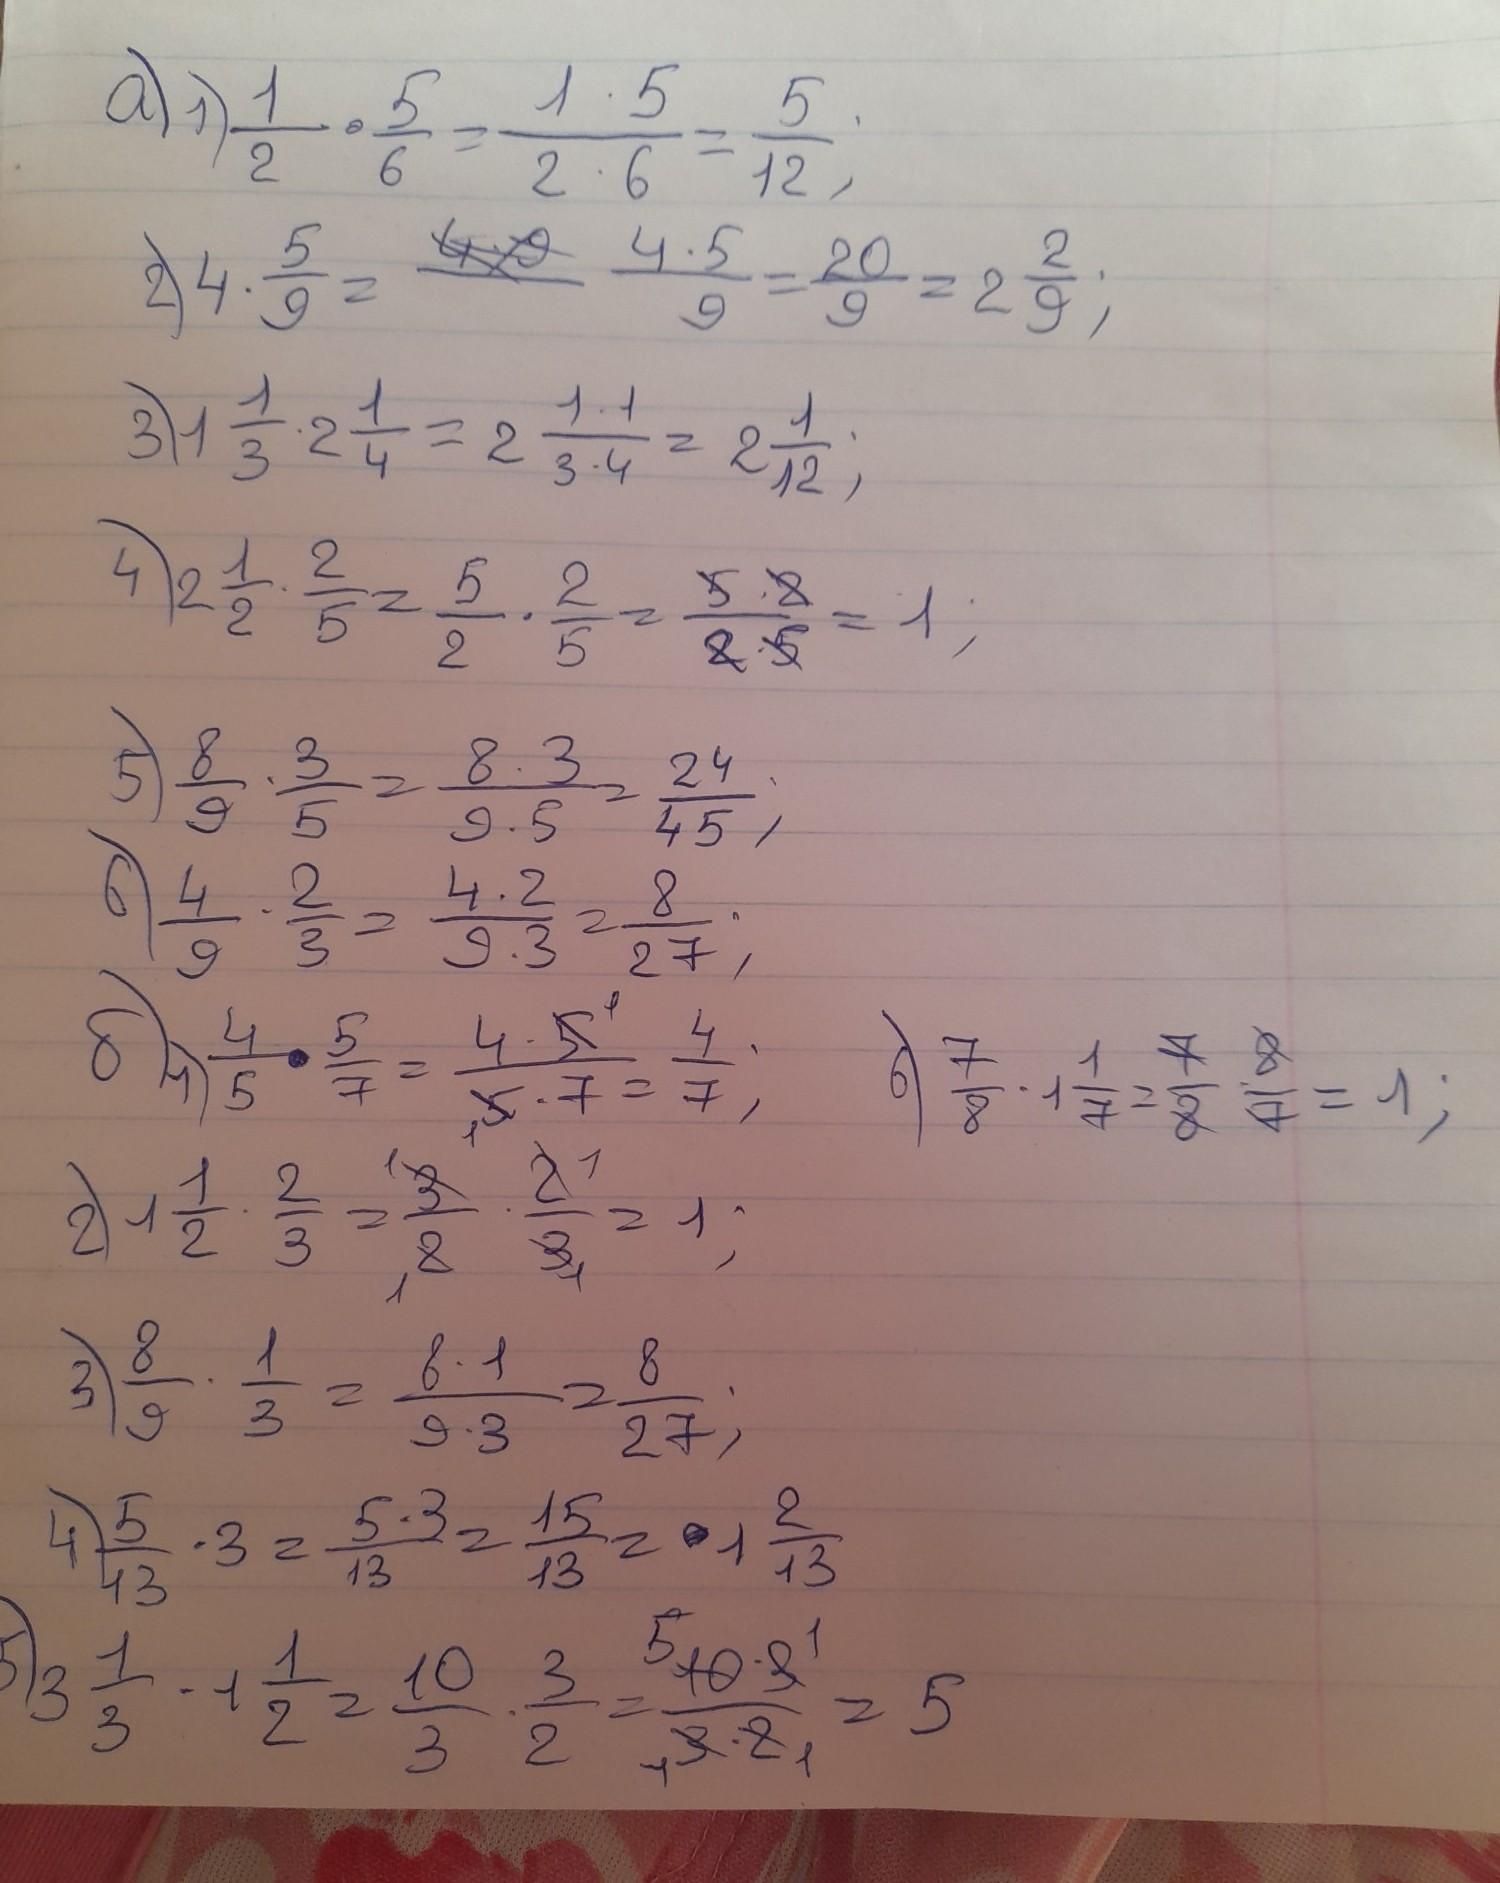 а) 1) 1/2 · 5/6 = 1 · 5/2 · 6 = 5/12;
2) 4 · 5/9 = 4 · 5/9 = 20/9 = 2 2/9;
3) 1 1/3 · 2 1/4 = 2 1 · 1/3 · 4 = 2 1/12;
4) 2 1/2 · 2/5 = 5/2 · 2/5 = 5 · 2/2 · 5 = 1;
5) 8/9 · 3/5 = 8 · 3/9 · 5 = 24/45;
6) 4/9 · 2/3 = 4 · 2/9 · 3 = 8/27;
б) 1) 4/5 · 5/7 = 4 · 5/5 · 7 = 4/7;
2) 1 1/2 · 2/3 = 3/2 · 2/3 = 1;
3) 8/9 · 1/3 = 8 · 1/9 · 3 = 8/27;
4) 5/13 · 3 = 5 · 3/13 = 15/13 = 1 2/13
5) 3 1/3 · 1 1/2 = 10/3 · 3/2 = 10 · 3/3 · 2 = 5
6) 7/8 · 1 1/7 = 7/8 · 8/7 = 1;